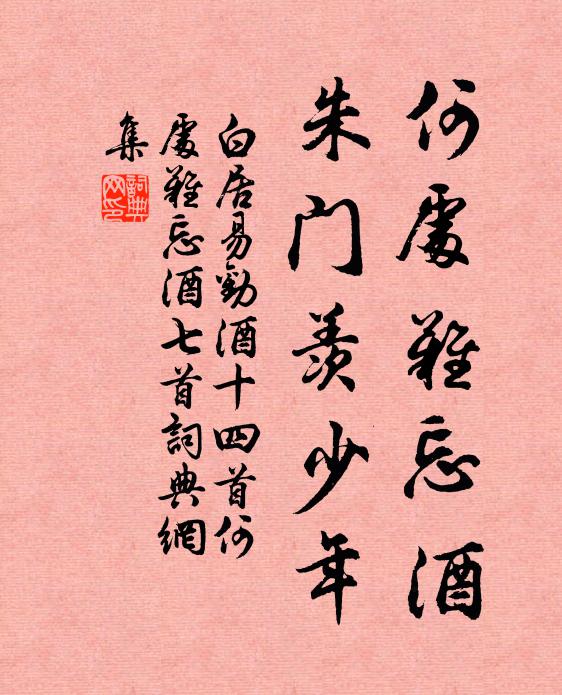 何處難忘酒
朱門羨少年
白居易勸酒十四首何
處難忘酒七首詞典網
集
詞典
网印